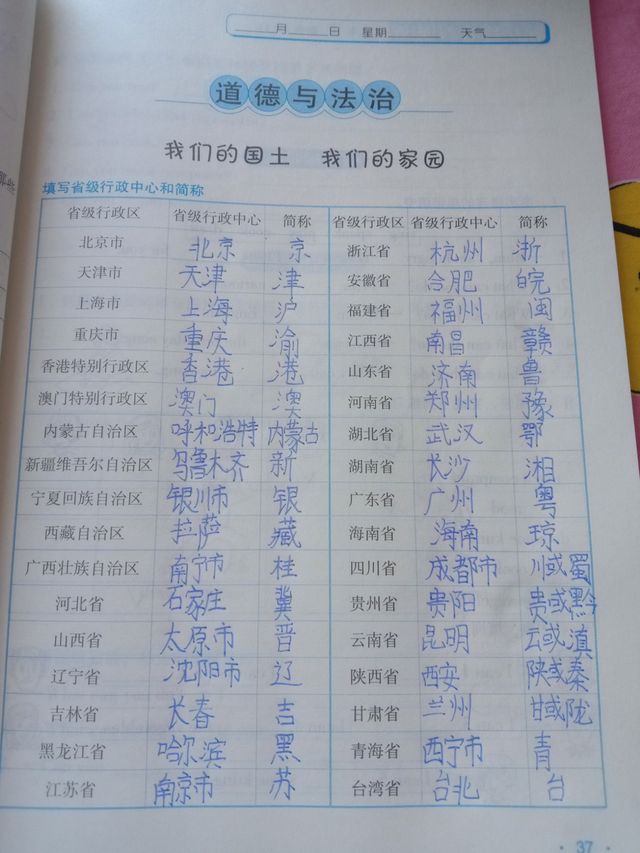 月 日 星期 天气
道德与法治
我们的国土 我们的家园
填写省级行政中心和简称
省级行政区 省级行政中心 简称 省级行政区 省级行政中心 简称
北京市 北京 京 浙江省 杭州 浙
天津市 天津 津 安徽省 合肥 皖
上海市 上海 沪 福建省 福州 闽
重庆市 重庆 渝 江西省 南昌 赣
香港特别行政区 香港 港 山东省 济南 鲁
澳门特别行政区 澳门 澳 河南省 郑州 豫
内蒙古自治区 呼和浩特 内蒙古 湖北省 武汉 鄂
新疆维吾尔自治区 乌鲁木齐 新 湖南省 长沙 湘
宁夏回族自治区 银川市 银 广东省 广州 粤
西藏自治区 拉萨 藏 海南省 海南 琼
广西壮族自治区 南宁市 桂 四川省 成都市 川或蜀
河北省 石家庄 冀 贵州省 贵阳 贵或黔
山西省 太原市 晋 云南省 昆明 云或滇
辽宁省 沈阳市 辽 陕西省 西安 陕或秦
吉林省 长春 吉 甘肃省 兰州 甘或陇
黑龙江省 哈尔滨 黑 青海省 西宁市 青
江苏省 南京市 苏 台湾省 台北 台
37